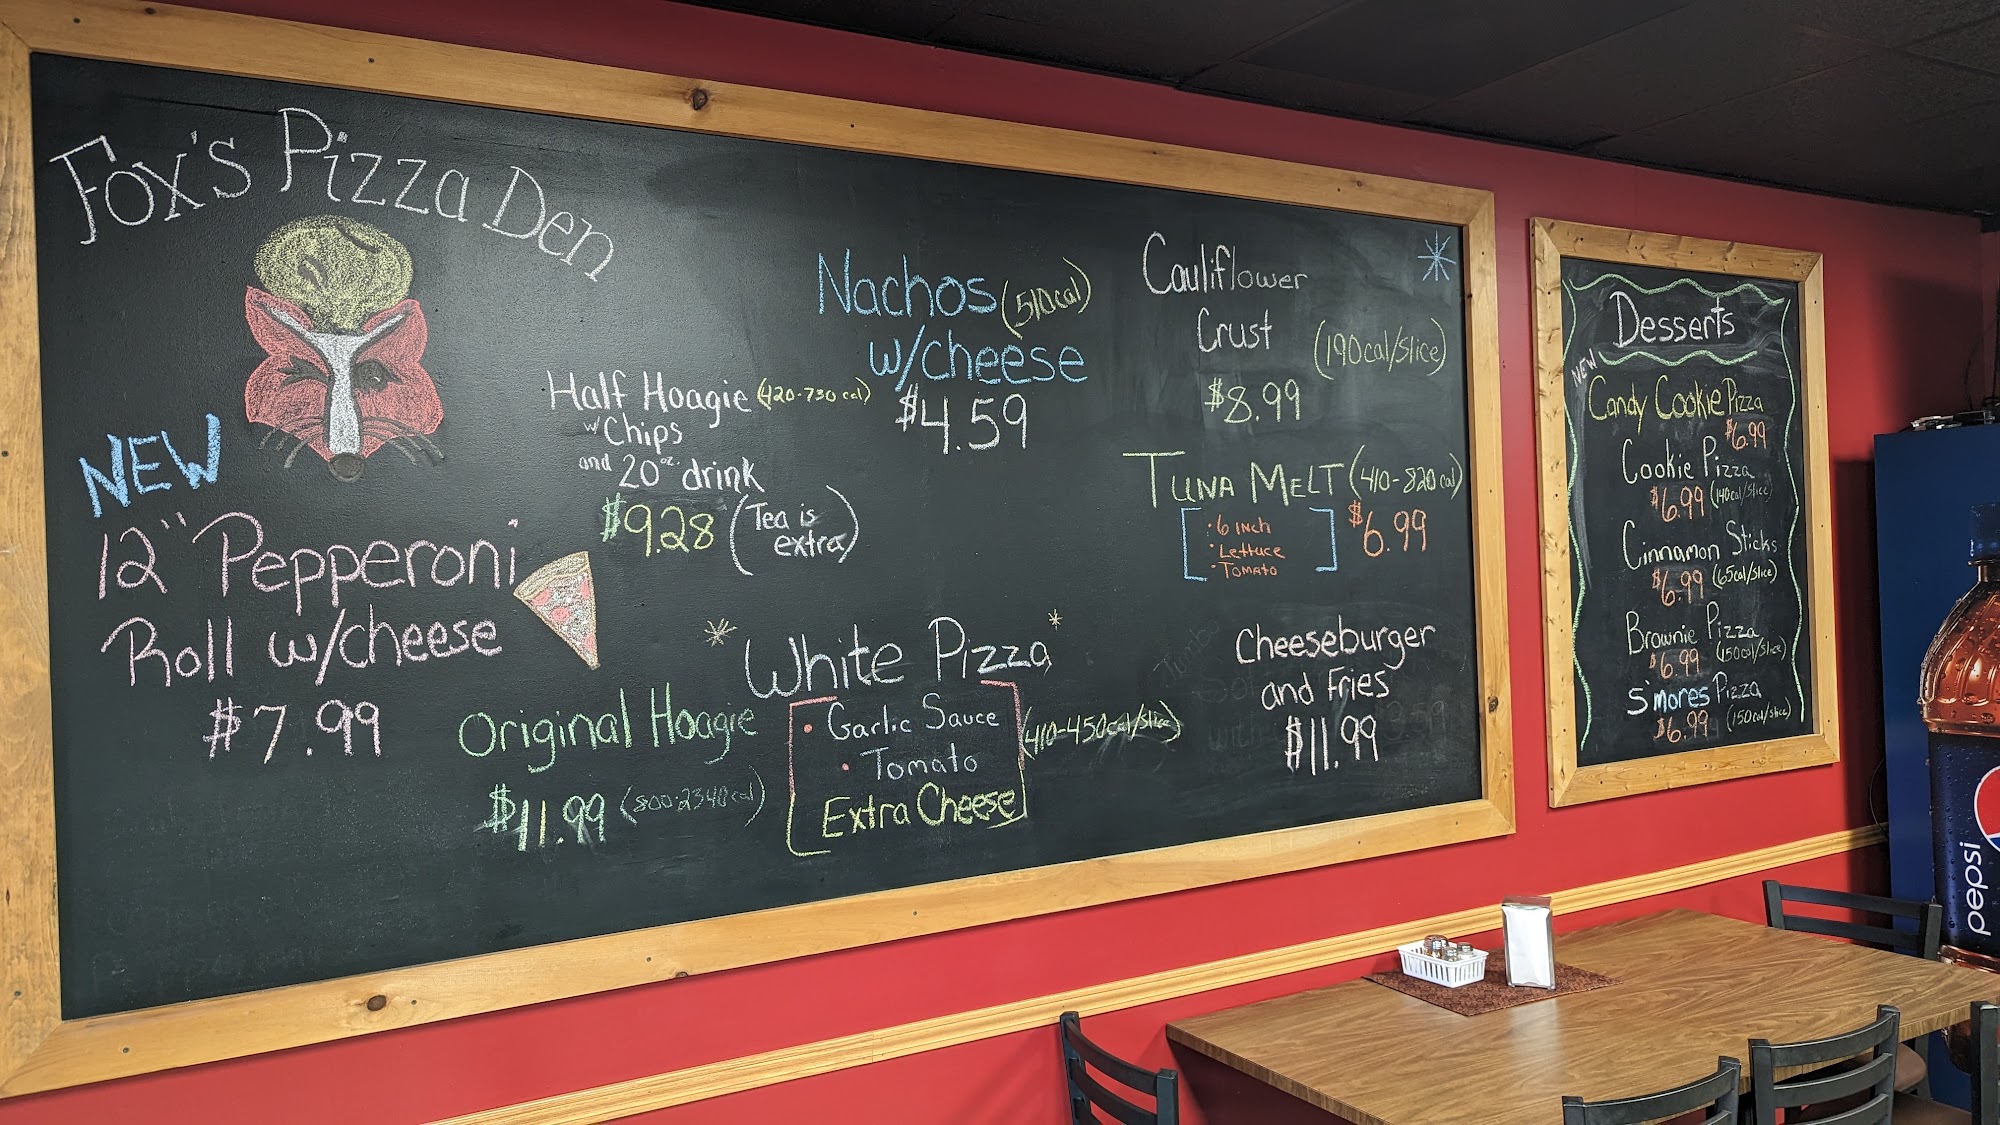 Fox's Pizza Den
NEW
12" Pepperoni
Roll w/cheese
$7.99
Half Hoagie (420-730 cal)
w/ Chips
and 20 oz. drink
$9.28 (Tea is
extra)
Original Hoagie
$11.99 (800-2340 cal)
Nachos (510 cal)
w/cheese
$4.59
White Pizza
• Garlic Sauce
• Tomato
Extra Cheese
(410-450 cal/slice)
Cauliflower
Crust (190 cal/slice)
$8.99
Tuna Melt (410-820 cal)
• 6 inch
• Lettuce
• Tomato
$6.99
Cheeseburger
and Fries
$11.99
Desserts
NEW
Candy Cookie Pizza
$6.99
Cookie Pizza
$6.99 (140 cal/slice)
Cinnamon Sticks
$6.99 (65 cal/slice)
Brownie Pizza
$6.99 (150 cal/slice)
S'mores Pizza
$6.99 (150 cal/slice)
pepsi